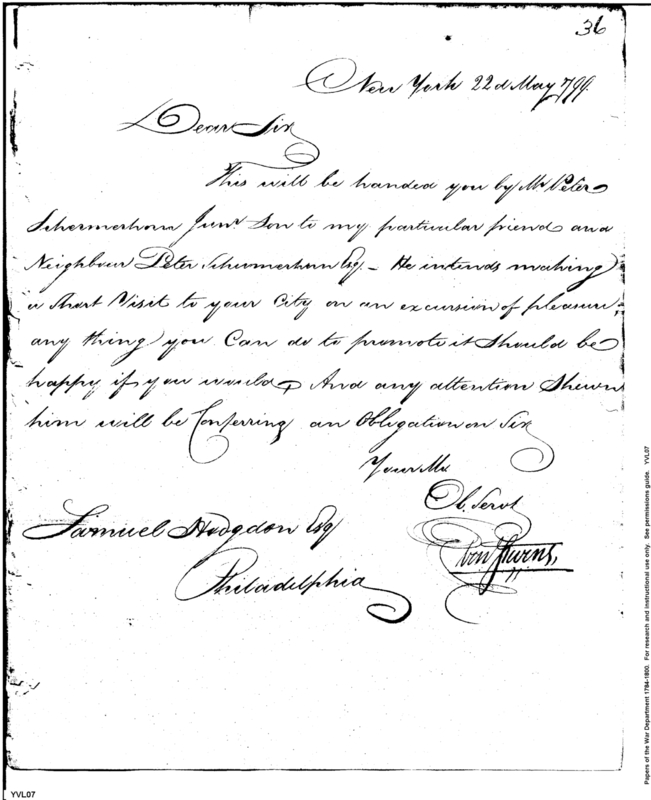 36
New York 22d May 799.
Dear Sir
This will be handed you by Mr. Peter
Schermerhorn Junr. Son to my particular friend and
Neighbour Peter Schermerhorn Esq. – He intends making
a Short Visit to your City on an excursion of pleasure,
any thing you Can do to promote it Should be
happy if you would, And any attention Shewn
him will be Conferring an Obligation on Sir
Your Mo
Ob. Servt
Samuel Hodgdon Esq
Philadelphia
Papers of the War Department 1784-1800. For research and instructional use only. See permissions guide. YVL07
YVL07